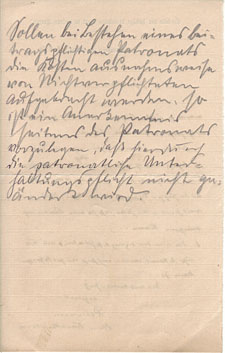 Sollen bei Bestehen eines bei-
tragspflichtigen Patronats
die Kosten Ausnahmsweise
von Nichtverpflichteten
Aufgebracht werden, so
ist ein Anerkenntnis
seitens des Patronats
vorzulegen, daß hierdurch
die patronatliche Unter-
haltungspflicht nicht ge-
ändert wird.